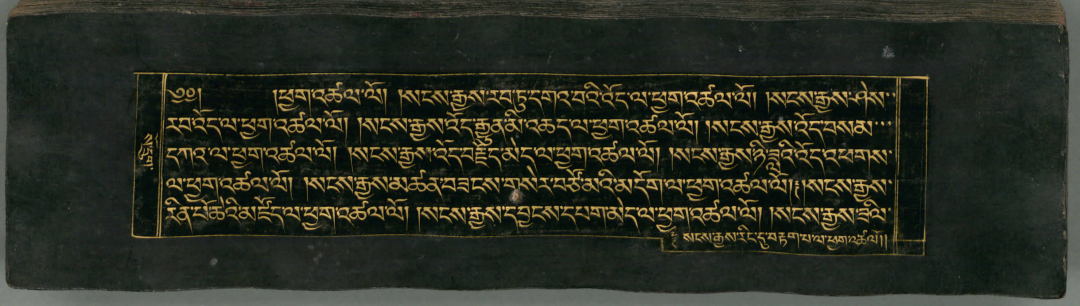 ༄༅། །ཕྱག་འཚལ་ལོ། །སངས་རྒྱས་རབ་ཏུ་དགའ་བའི་འོད་ལ་ཕྱག་འཚལ་ལོ། །སངས་རྒྱས་ཤེས་
རབ་འོད་ལ་ཕྱག་འཚལ་ལོ། །སངས་རྒྱས་འོད་རྒྱུན་མི་འཆད་ལ་ཕྱག་འཚལ་ལོ། །སངས་རྒྱས་འོད་བསམ་
དཀའ་ལ་ཕྱག་འཚལ་ལོ། སངས་རྒྱས་འོད་བརྗོད་མེད་ལ་ཕྱག་འཚལ་ལོ། །སངས་རྒྱས་ཉི་ཟླའི་འོད་འཕགས་
ལ་ཕྱག་འཚལ་ལོ། །སངས་རྒྱས་མཚན་བཟངས་གསེར་བཙོ་མའི་མདོག་ལ་ཕྱག་འཚལ་ལོ། །སངས་རྒྱས་
རིན་པོ་ཆེའི་མཛོད་ལ་ཕྱག་འཚལ་ལོ། །སངས་རྒྱས་དབྱངས་དཔག་མེད་ལ་ཕྱག་འཚལ་ལོ། །སངས་རྒྱས་
སངས་རྒྱས་རིང་དུ་བརྟག་པ་ལ་ཕྱག་འཚལ་ལོ།།